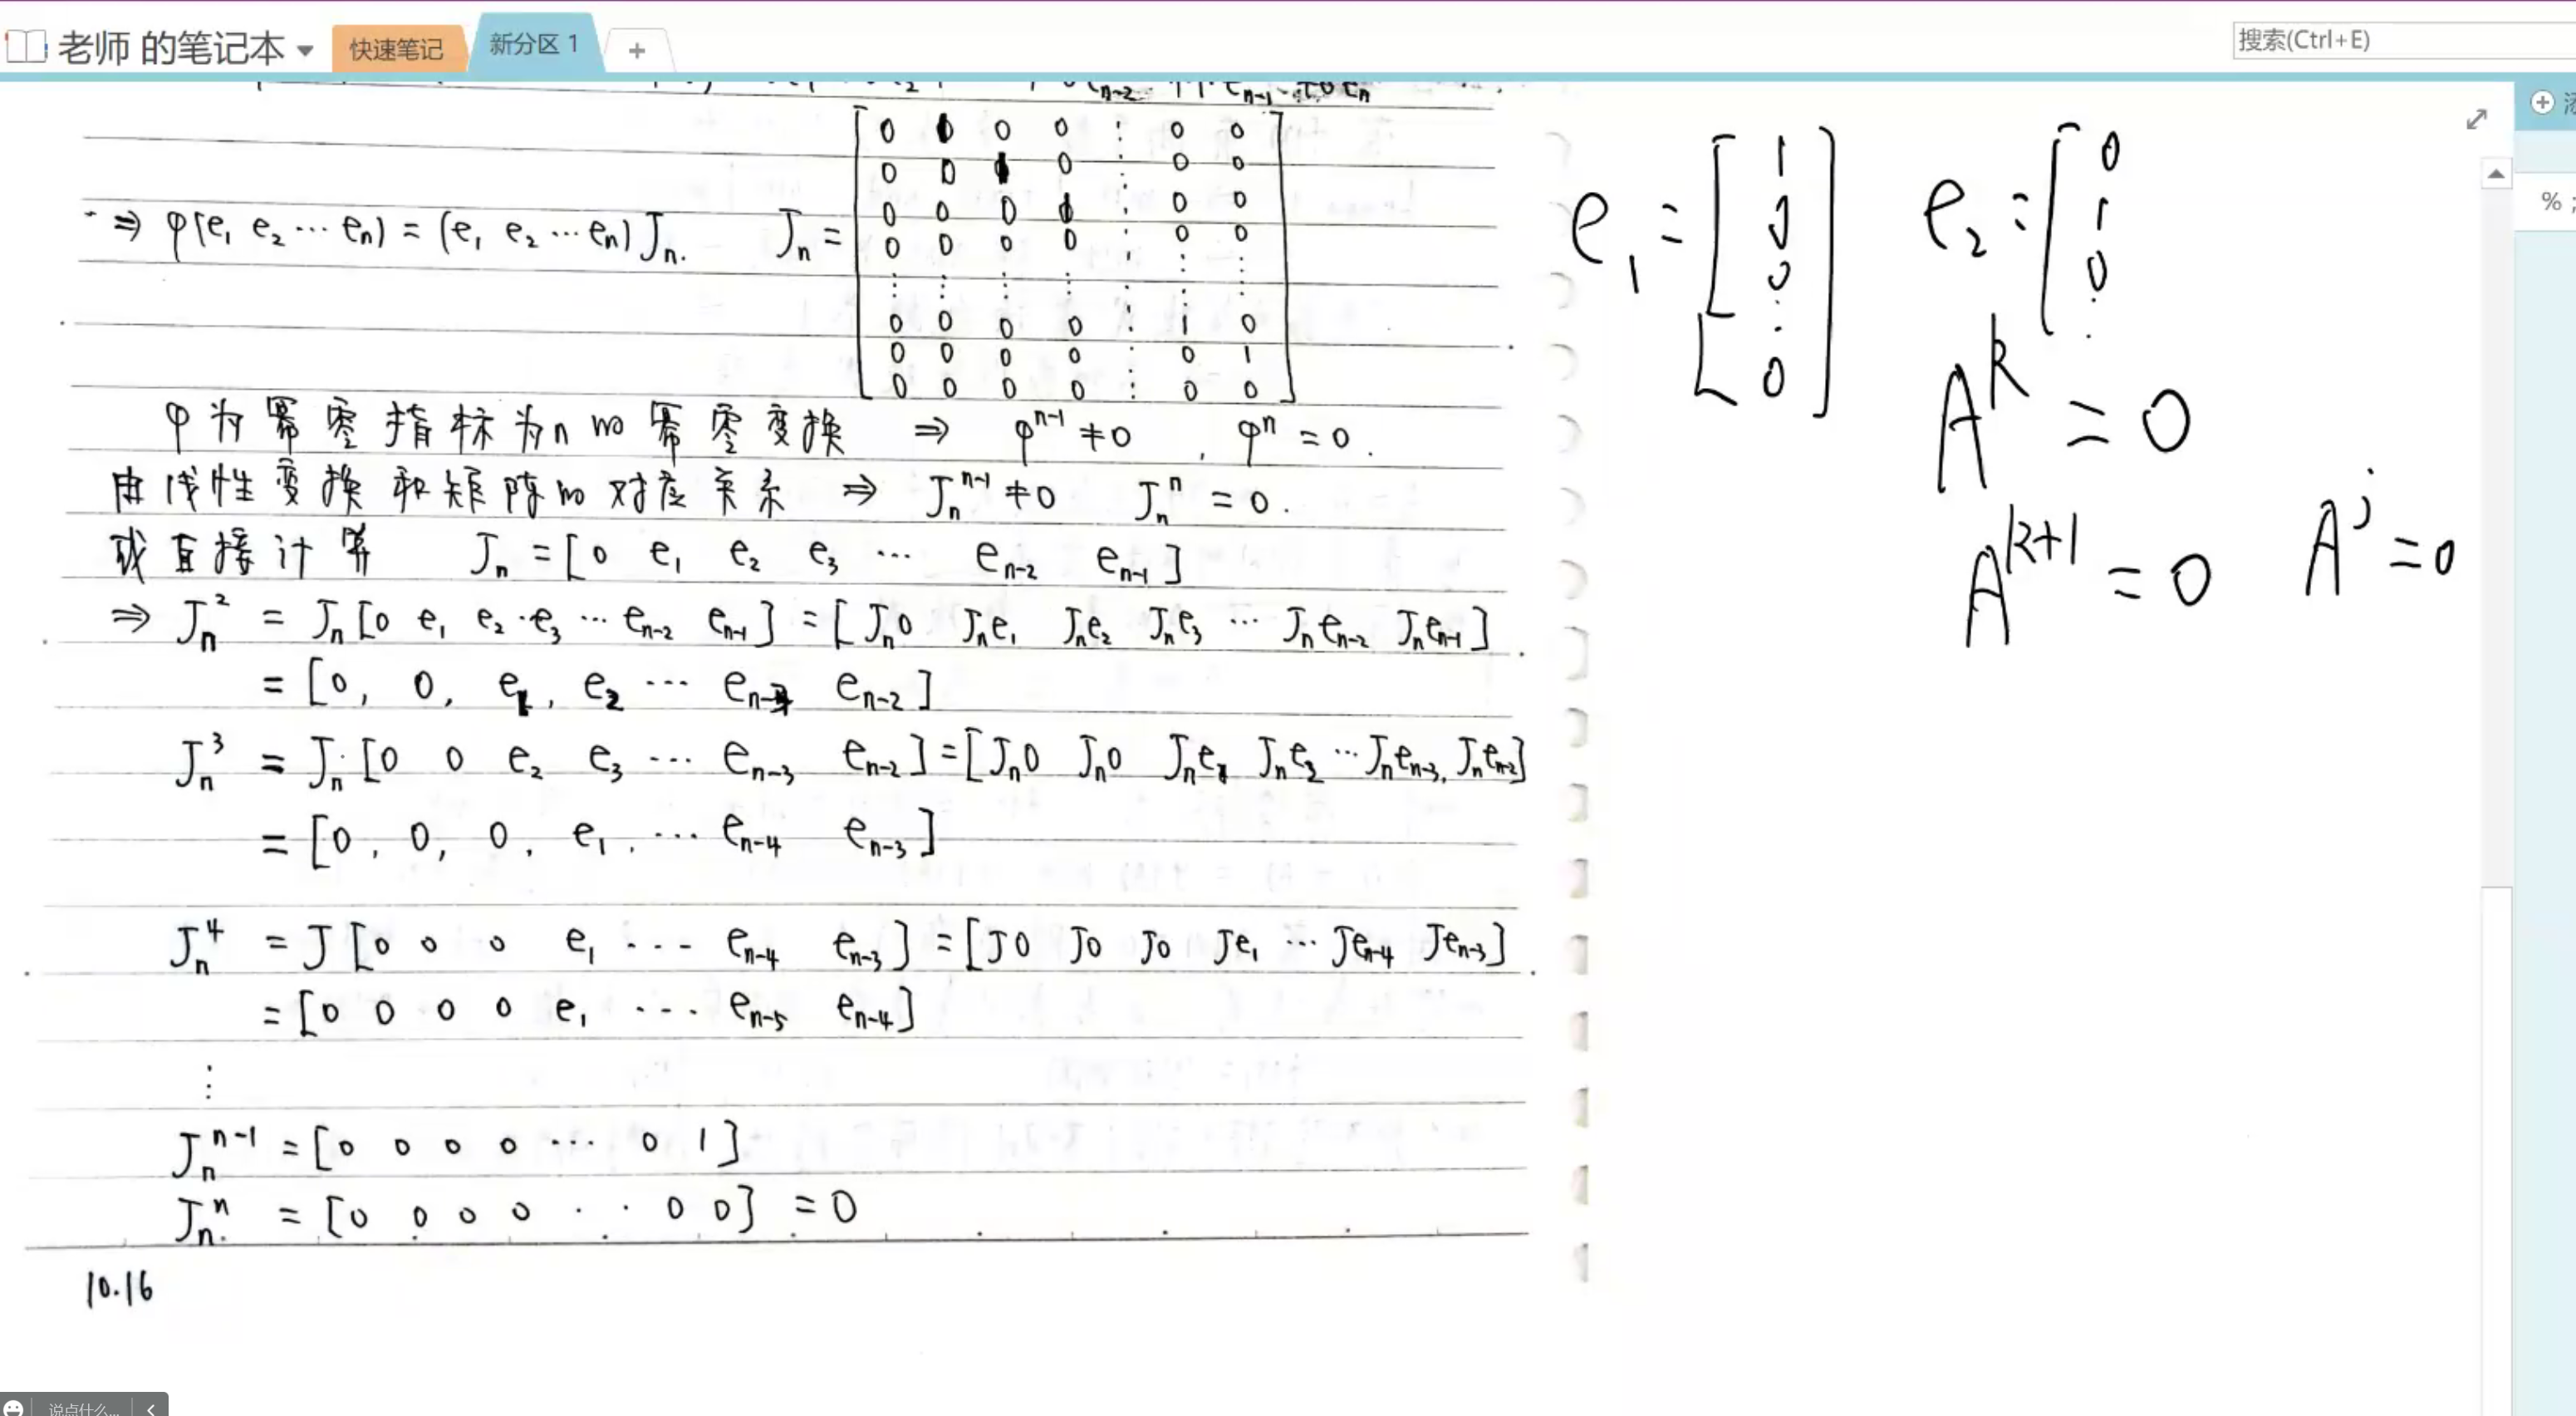 老师 的笔记本
快速笔记
新分区 1
+
搜索(Ctrl+E)
e_{n-2} e_{n-1} + 0 e_n
⇒ φ(e₁ e₂ ⋯ eₙ) = (e₁ e₂ ⋯ eₙ) Jₙ. Jₙ =
0 1 0 0 ⋮ 0 0
0 0 1 0 ⋮ 0 0
0 0 0 1 ⋮ 0 0
0 0 0 0 ⋮ 0 0
⋮ ⋮ ⋮ ⋮ ⋮ ⋮
0 0 0 0 ⋮ 1 0
0 0 0 0 ⋮ 0 1
0 0 0 0 ⋮ 0 0
φ为幂零指标为n的幂零变换 ⇒ φ^{n-1} ≠ 0, φ^n = 0.
由线性变换和矩阵的对应关系 ⇒ Jₙ^{n-1} ≠ 0 Jₙ^n = 0.
或直接计算 Jₙ = [0 e₁ e₂ e₃ ⋯ e_{n-2} e_{n-1}]
⇒ Jₙ² = Jₙ[0 e₁ e₂ e₃ ⋯ e_{n-2} e_{n-1}] = [Jₙ0 Jₙe₁ Jₙe₂ Jₙe₃ ⋯ Jₙe_{n-2} Jₙe_{n-1}]
= [0, 0, e₁, e₂ ⋯ e_{n-3} e_{n-2}]
Jₙ³ = Jₙ[0 0 e₂ e₃ ⋯ e_{n-3} e_{n-2}] = [Jₙ0 Jₙ0 Jₙe₁ Jₙe₂ ⋯ Jₙe_{n-3}, Jₙe_{n-2}]
= [0, 0, 0, e₁, ⋯ e_{n-4} e_{n-3}]
Jₙ⁴ = J[0 0 0 e₁ ⋯ e_{n-4} e_{n-3}] = [J0 J0 J0 Je₁ ⋯ Je_{n-4} Je_{n-3}]
= [0 0 0 0 e₁ ⋯ e_{n-5} e_{n-4}]
⋮
Jₙ^{n-1} = [0 0 0 0 ⋯ 0 1]
Jₙ^n = [0 0 0 0 ⋅ ⋅ 0 0] = 0
10.16
e₁ = [1 0 0 ⋮ 0]
e₂ = [0 1 0 ⋮
A^k = 0
A^{k+1} = 0 A^j = 0
%;
说点什么...